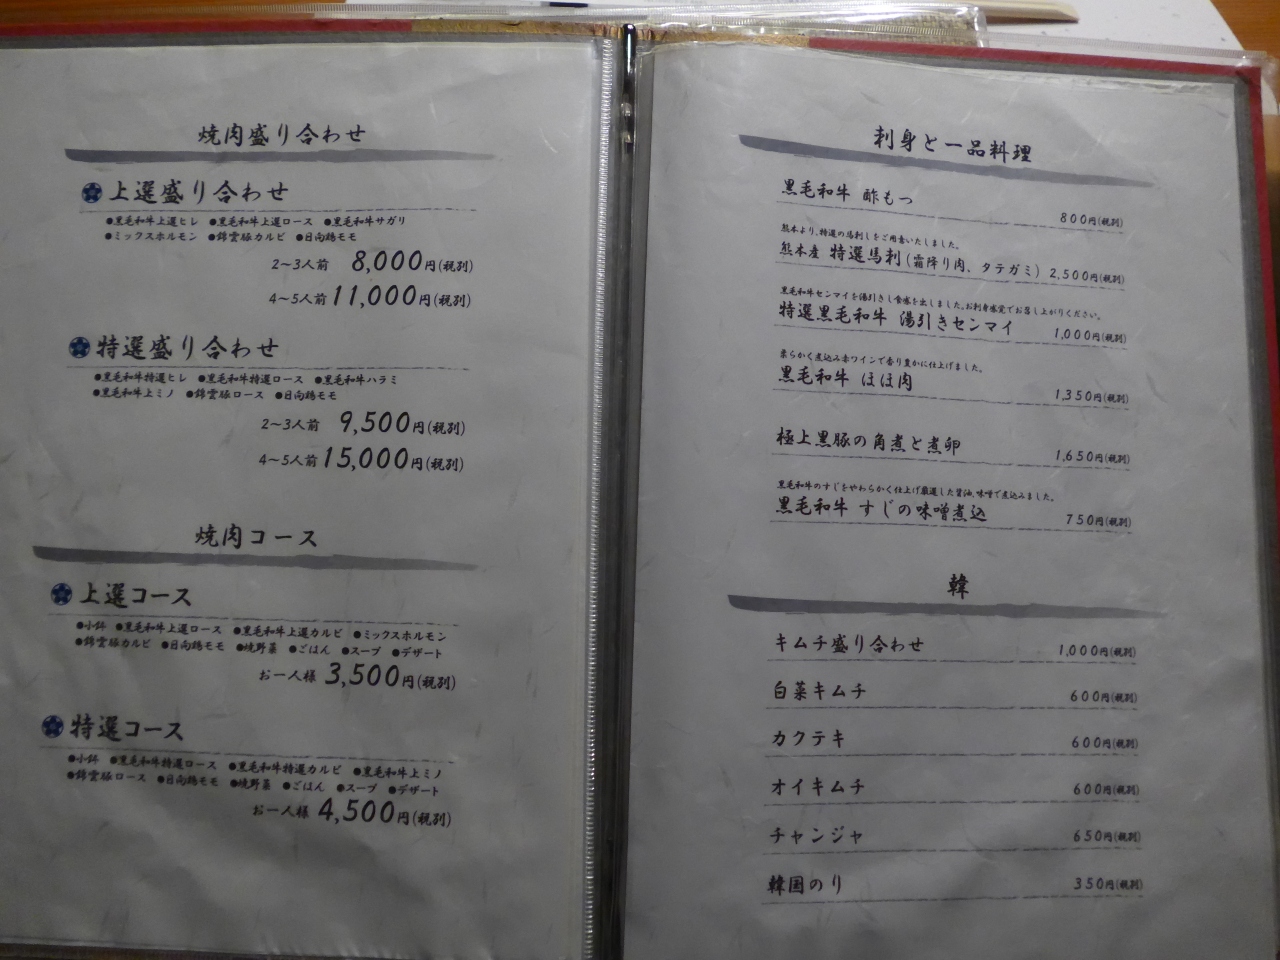 焼肉盛り合わせ
上選盛り合わせ
●黒毛和牛上選ヒレ ●黒毛和牛上選ロース ●黒毛和牛サガリ
●ミックスホルモン ●錦雲豚カルビ ●日向鶏モモ
2〜3人前 8,000円(税別)
4〜5人前 11,000円(税別)
特選盛り合わせ
●黒毛和牛特選ヒレ ●黒毛和牛特選ロース ●黒毛和牛ハラミ
●黒毛和牛上ミノ ●錦雲豚ロース ●日向鶏モモ
2〜3人前 9,500円(税別)
4〜5人前 15,000円(税別)
焼肉コース
上選コース
●小鉢 ●黒毛和牛上選ロース ●黒毛和牛上選カルビ ●ミックスホルモン
●錦雲豚カルビ ●日向鶏モモ ●焼野菜 ●ごはん ●スープ ●デザート
お一人様 3,500円(税別)
特選コース
●小鉢 ●黒毛和牛特選ロース ●黒毛和牛特選カルビ ●黒毛和牛上ミノ
●錦雲豚ロース ●日向鶏モモ ●焼野菜 ●ごはん ●スープ ●デザート
お一人様 4,500円(税別)
刺身と一品料理
黒毛和牛 酢もつ 800円(税別)
熊本より、特選の馬刺しをご用意いたしました。
熊本産 特選馬刺(霜降り肉、タテガミ) 2,500円(税別)
黒毛和牛センマイを湯引きし食感を出しました。お刺身感覚でお召し上がりください。
特選黒毛和牛 湯引きセンマイ 1,000円(税別)
柔らかく煮込み赤ワインで香り豊かに仕上げました。
黒毛和牛 ほほ肉 1,350円(税別)
極上黒豚の角煮と煮卵 1,650円(税別)
黒毛和牛のすじをやわらかく仕上げ厳選した醤油、味噌で煮込みました。
黒毛和牛 すじの味噌煮込 750円(税別)
韓
キムチ盛り合わせ 1,000円(税別)
白菜キムチ 600円(税別)
カクテキ 600円(税別)
オイキムチ 600円(税別)
チャンジャ 650円(税別)
韓国のり 350円(税別)